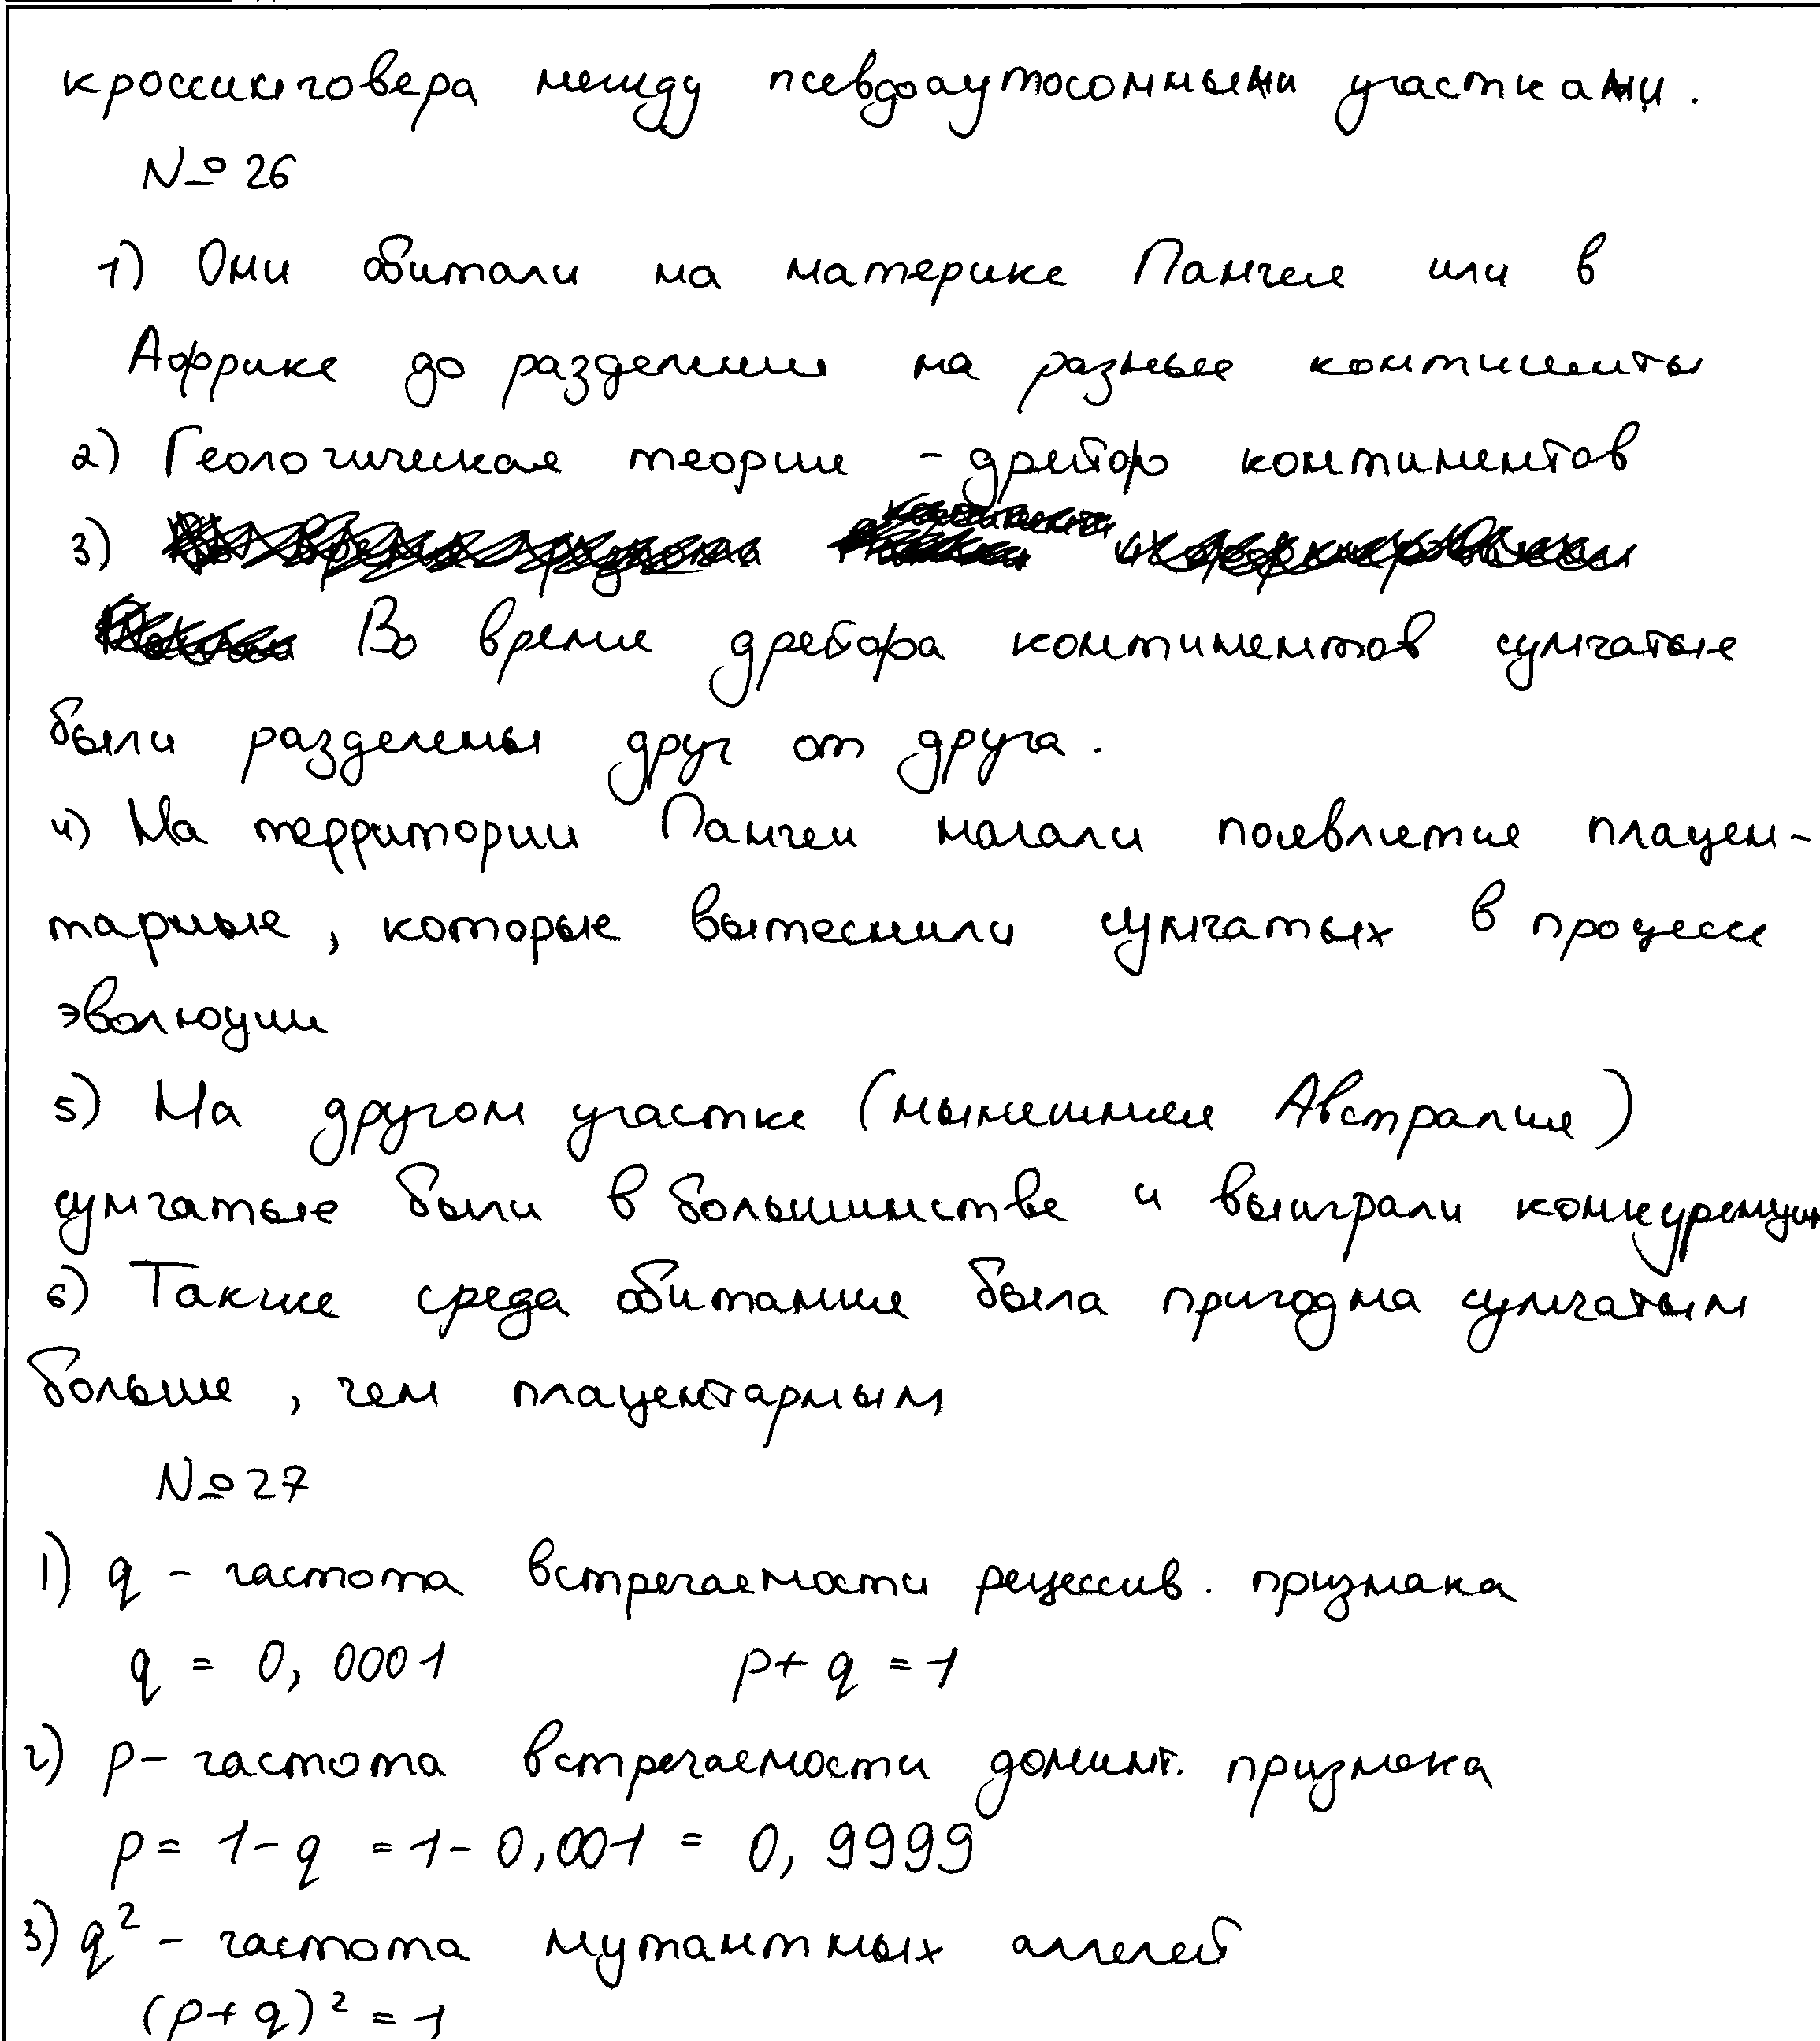 кроссинговера между псевдоаутосомными участками.
№ 26
1) Они обитали на материке Пангея или в
Африке до разделения на разные континенты
2) Геологическая теория - дрейф континентов
3)
Во время дрейфа континентов сумчатые
были разделены друг от друга.
4) На территории Пангеи начали появлятие плацен-
тарные, которые вытеснили сумчатых в процессе
эволюции
5) На другом участке (нынешняя Австралия)
сумчатые были в большинстве и выиграли конкуренции
6) Также среда обитания была пригодна сумчатым
больше, чем плацентарным
№ 27
1) q - частота встречаемости рецессив. признака
q = 0,0001 p+q = 1
2) p - частота встречаемости доминт. признака
p = 1-q = 1-0,001 = 0,9999
3) q² - частота мутантных аллелей
(p+q)² = 1